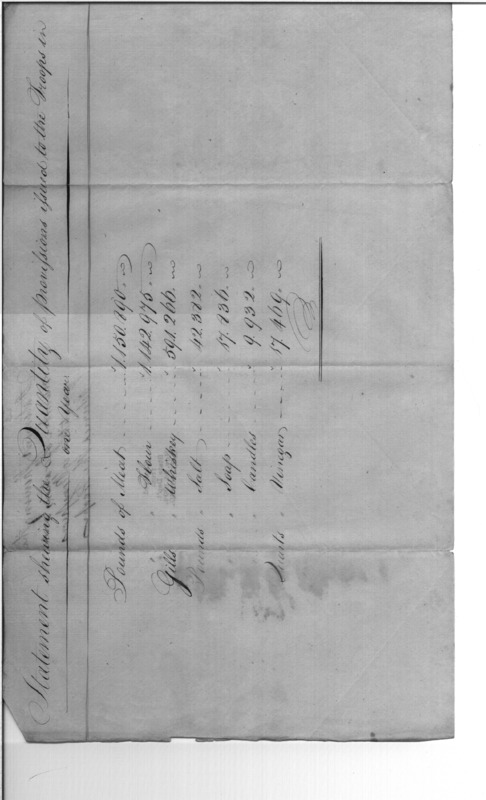 Statement shewing the Quantity of provisions issued to the Troops in
one year
Pounds of Meat - - - - 1,150,190.
" Flour - - - - 1,142,975.
Gills " Whiskey - - - - 591,266.
Pounds " Salt - - - - 42,522.
" " Soap - - - - 17,136.
" " Candles - - - - 9,932.
Quarts " Vinegar - - - - 57,469.